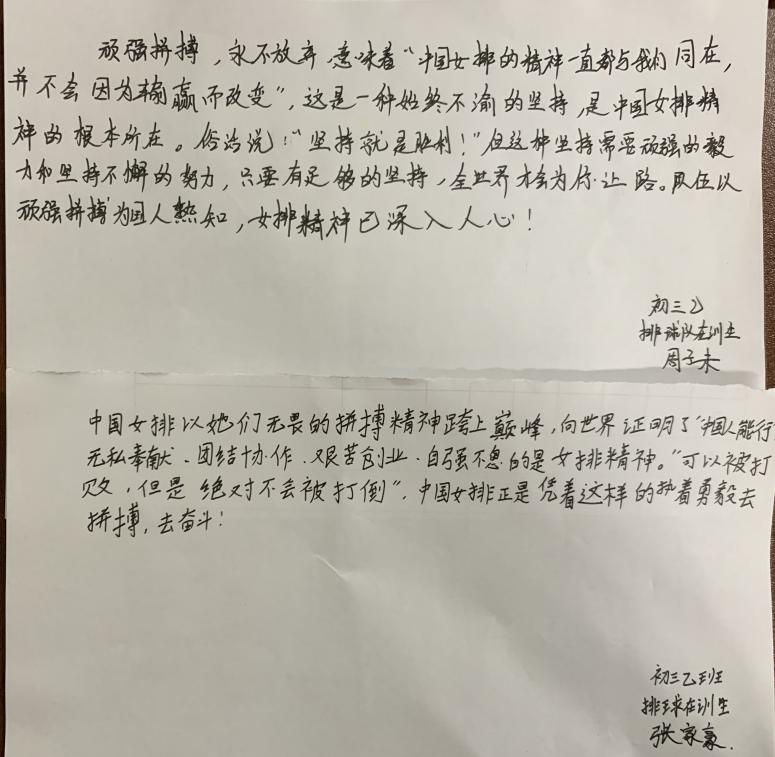 顽强拼搏，永不放弃，意味着“中国女排的精神一直都与我们同在，
并不会因为输赢而改变”，这是一种始终不渝的坚持，是中国女排精
神的根本所在。俗话说：“坚持就是胜利！”但这种坚持需要顽强的毅
力和坚持不懈的努力，只要有足够的坚持，全世界才会为你让路。队伍以
顽强拼搏为国人熟知，女排精神已深入人心！
初三乙
排球队在训生
周子未
中国女排以她们无畏的拼搏精神跨上巅峰，向世界证明了“中国人能行”
无私奉献、团结协作、艰苦创业、自强不息的是女排精神。“可以被打
败，但是绝对不会被打倒”，中国女排正是凭着这样的执着勇毅去
拼搏，去奋斗！
初三乙班
排球在训生
张家豪.